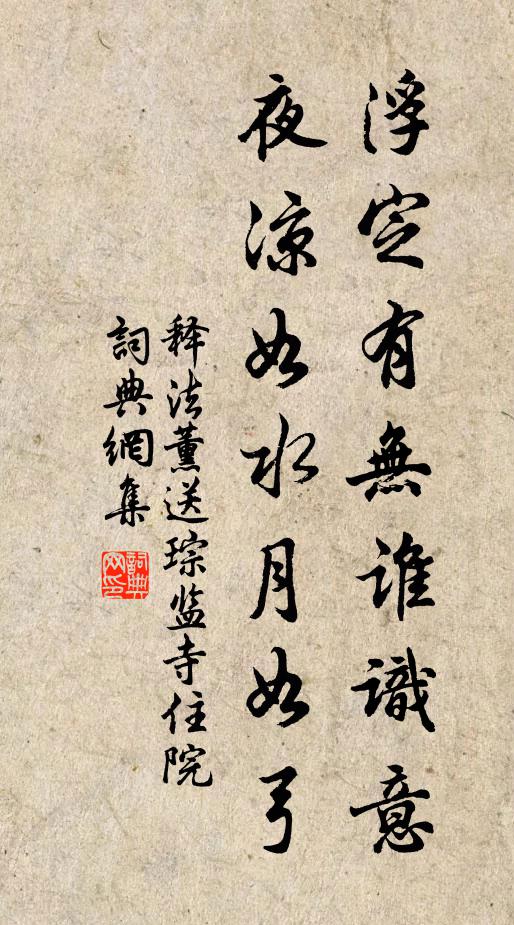 浮空有無誰識意
夜涼如水月如弓
释法薰送琮监寺住院
詞典網集
詞典网印